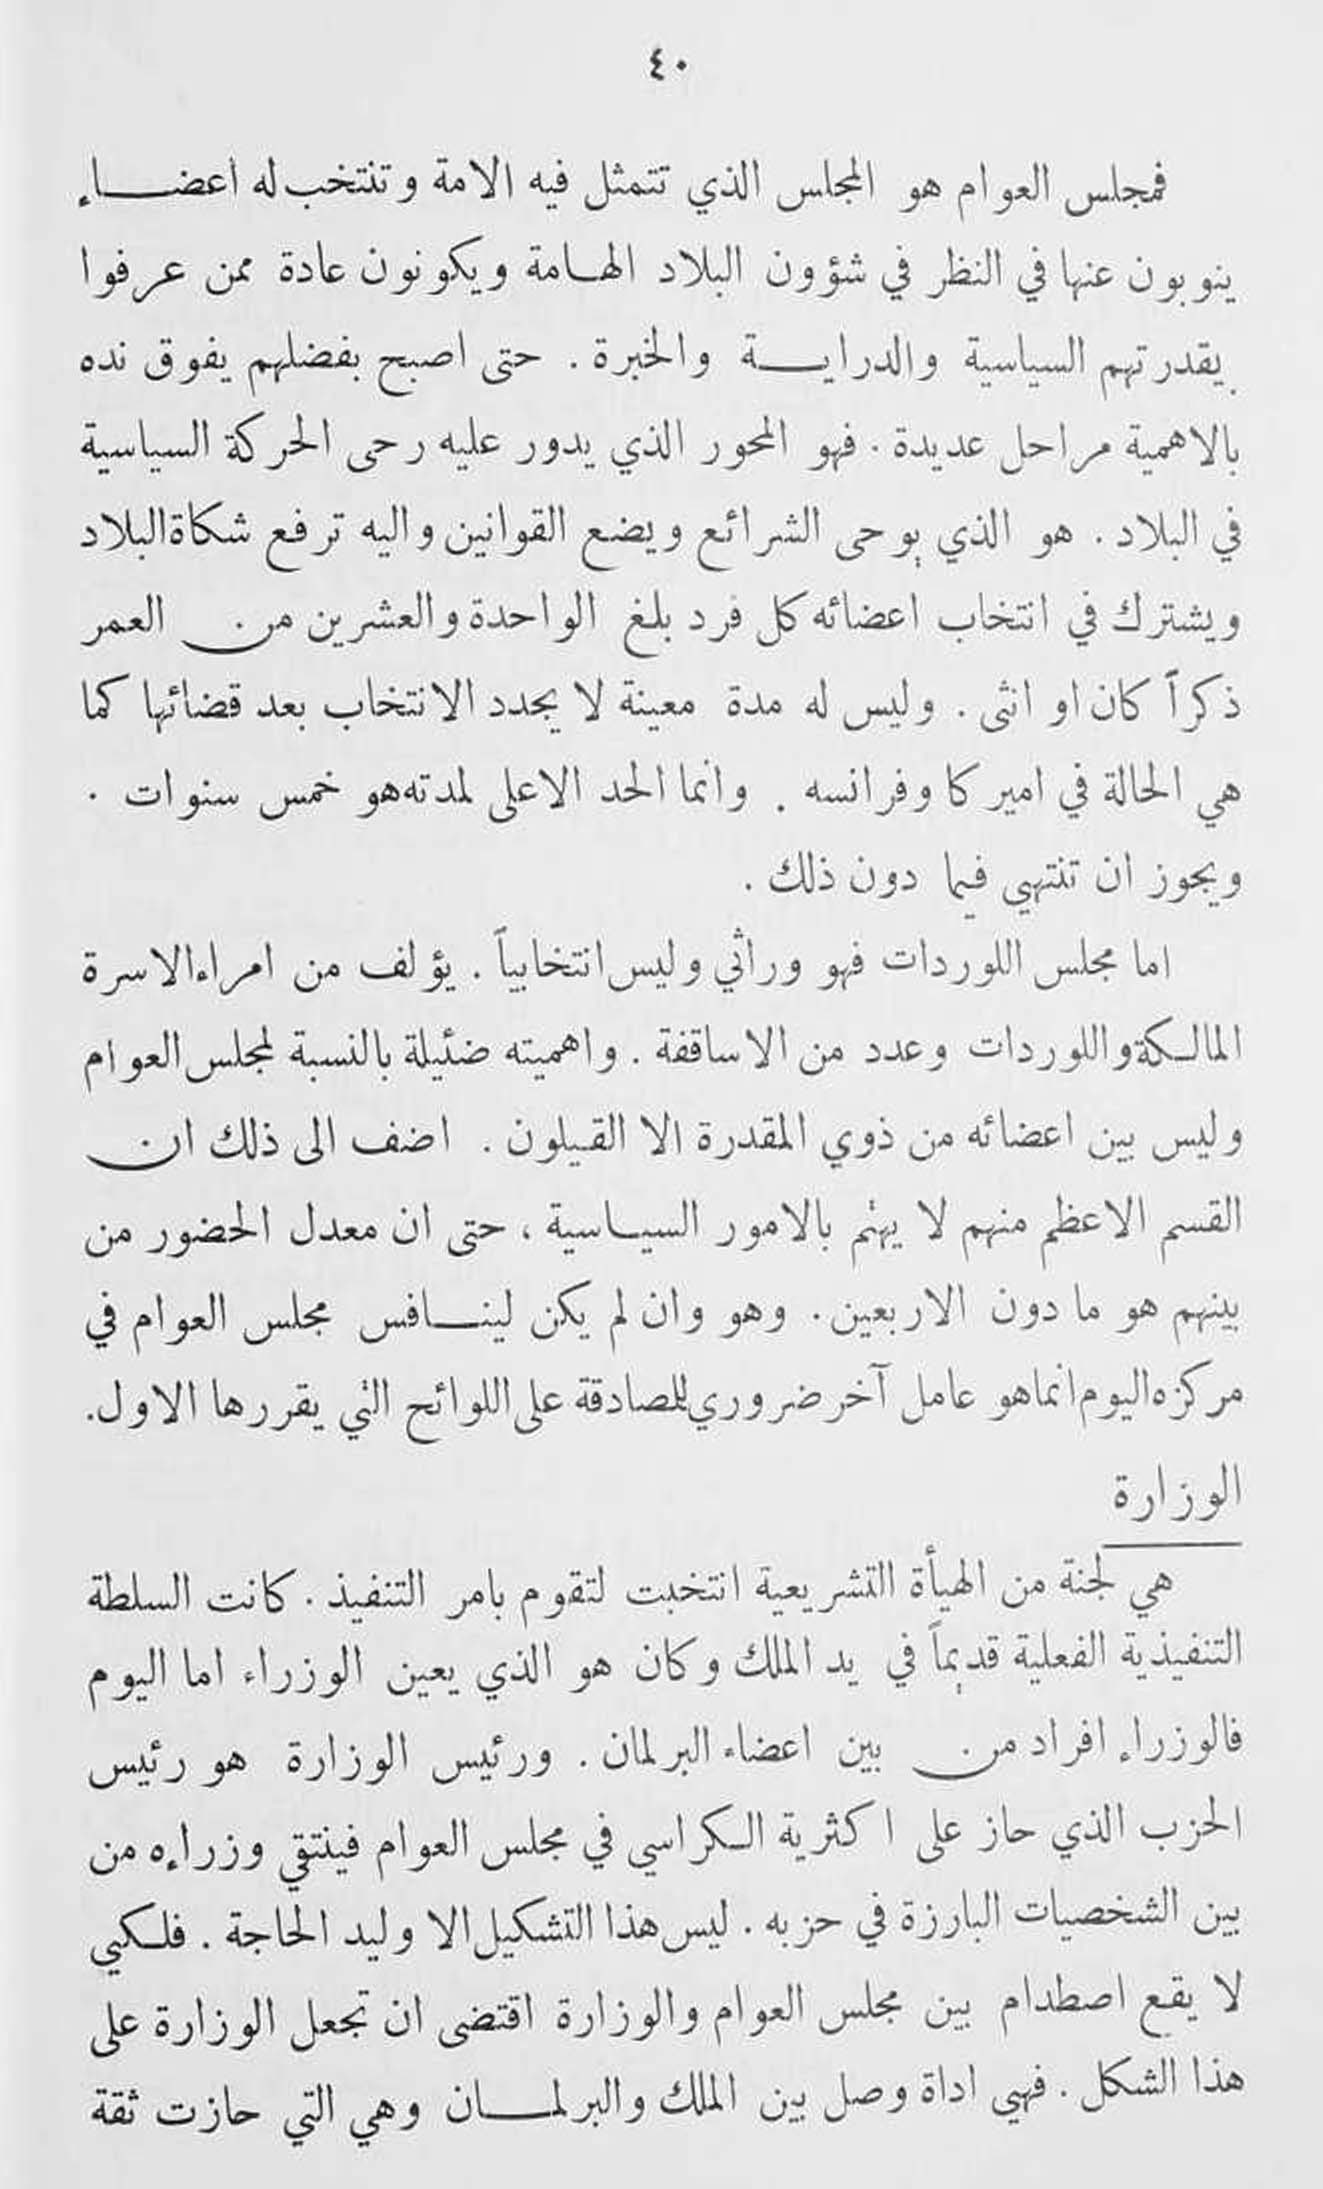 ٤٠
فمجلس العوام هو المجلس الذي تتمثل فيه الامة وتنتخب له اعضاء
ينوبون عنها في النظر في شؤون البلاد الهامة ويكونون عادة ممن عرفوا
بقدرتهم السياسية والدراية والخبرة . حتى اصبح بفضلهم يفوق نده
بالاهمية مراحل عديدة . فهو المحور الذي يدور عليه رحى الحركة السياسية
في البلاد . هو الذي يوحى الشرائع ويضع القوانين واليه ترفع شكاة البلاد
ويشترك في انتخاب اعضائه كل فرد بلغ الواحدة والعشرين من العمر
ذكراً كان او انثى . وليس له مدة معينة لا يجدد الانتخاب بعد قضائها كما
هي الحالة في اميركا وفرانسه . وانما الحد الاعلى لمدته هو خمس سنوات .
ويجوز ان تنتهي فيما دون ذلك .
اما مجلس اللوردات فهو وراثي وليس انتخابياً . يؤلف من امراء الاسرة
المالكة واللوردات وعدد من الاساقفة . واهميته ضئيلة بالنسبة لمجلس العوام
وليس بين اعضائه من ذوي المقدرة الا القيلون . اضف الى ذلك ان
القسم الاعظم منهم لا يهتم بالامور السياسية ، حتى ان معدل الحضور من
بينهم هو ما دون الاربعين . وهو وان لم يكن لينافس مجلس العوام في
مركزه اليوم انما هو عامل آخر ضروري للمصادقة على اللوائح التي يقررها الاول .
الوزارة
هي لجنة من الهيأة التشريعية انتخبت لتقوم بامر التنفيذ . كانت السلطة
التنفيذية الفعلية قديماً في يد الملك وكان هو الذي يعين الوزراء اما اليوم
فالوزراء افراد من بين اعضاء البرلمان . ورئيس الوزارة هو رئيس
الحزب الذي حاز على اكثرية الكراسي في مجلس العوام فينتقي وزراءه من
بين الشخصيات البارزة في حزبه . ليس هذا التشكيل الا وليد الحاجة . فلكي
لا يقع اصطدام بين مجلس العوام والوزارة اقتضى ان تجعل الوزارة على
هذا الشكل . فهي اداة وصل بين الملك والبرلمان وهي التي حازت ثقة